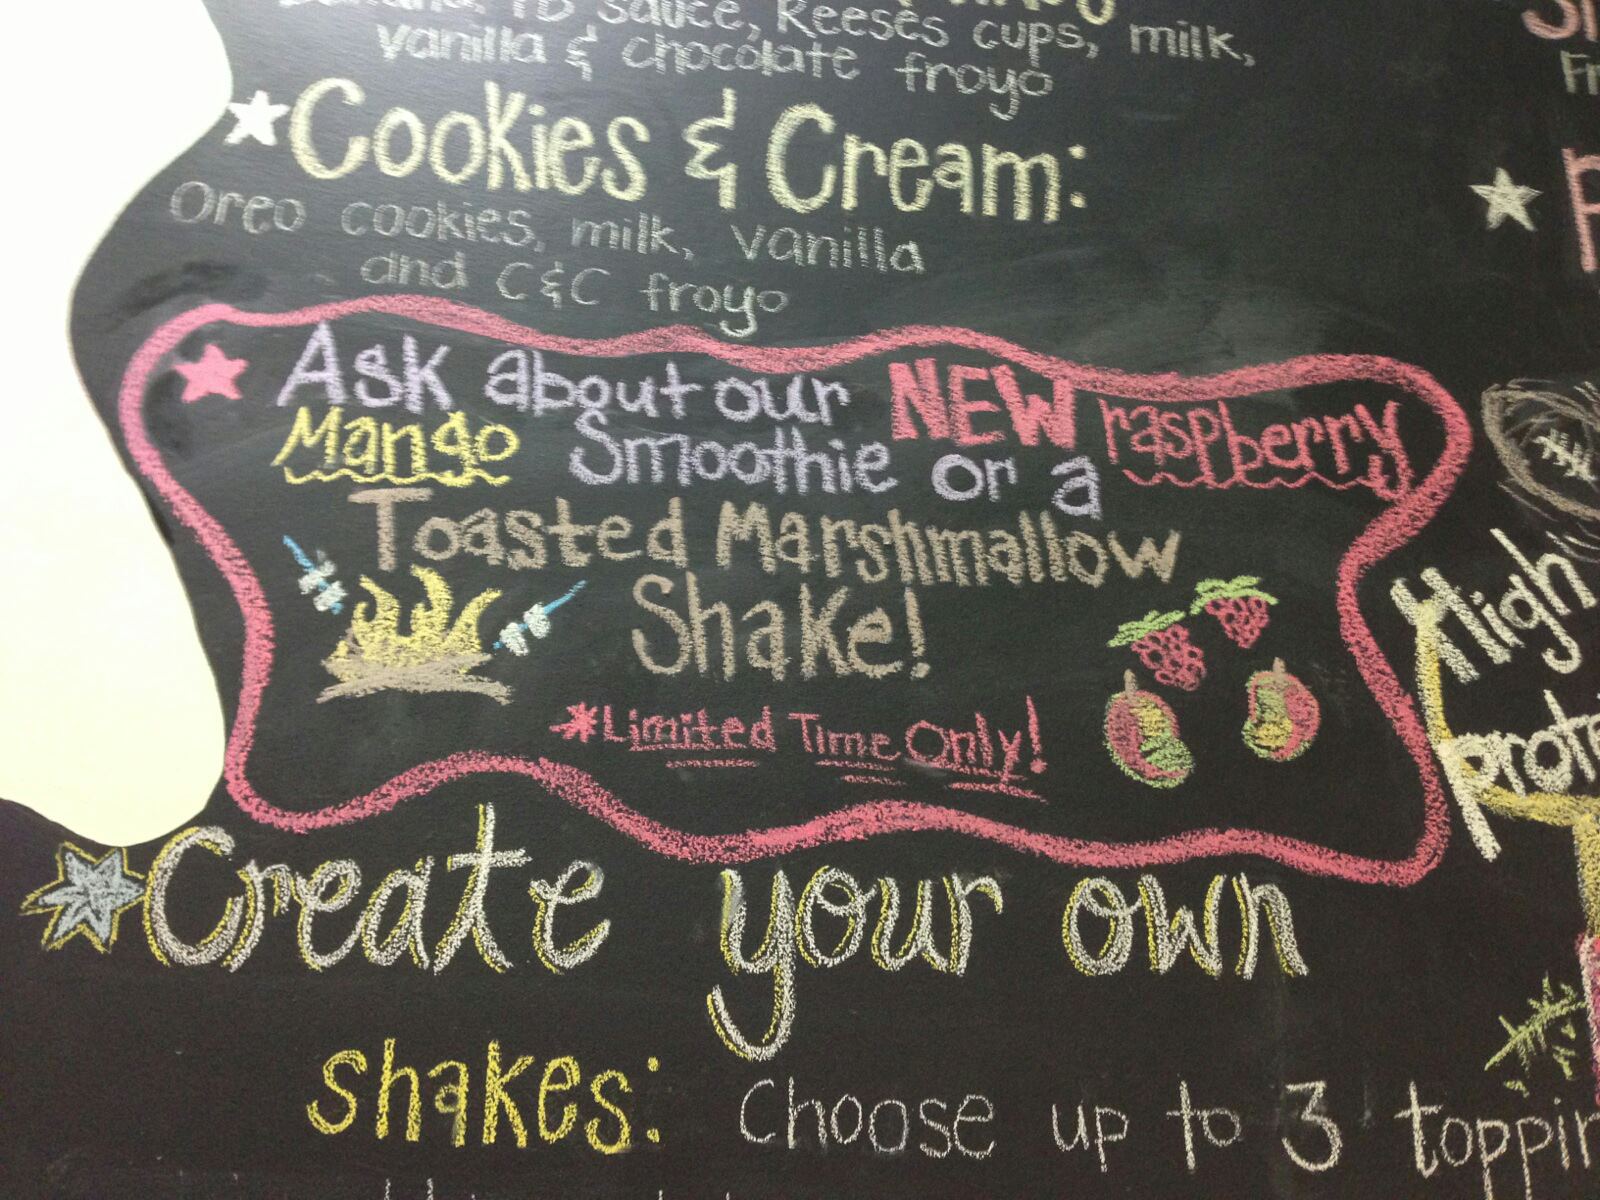 PB sauce, Reeses cups, milk,
vanilla & chocolate froyo
Cookies & Cream:
Oreo cookies, milk, vanilla
and C&C froyo
Ask about our NEW raspberry
Mango Smoothie or a
Toasted Marshmallow
Shake!
*Limited Time Only!
Create your own
shakes: Choose up to 3 toppin
High
prote